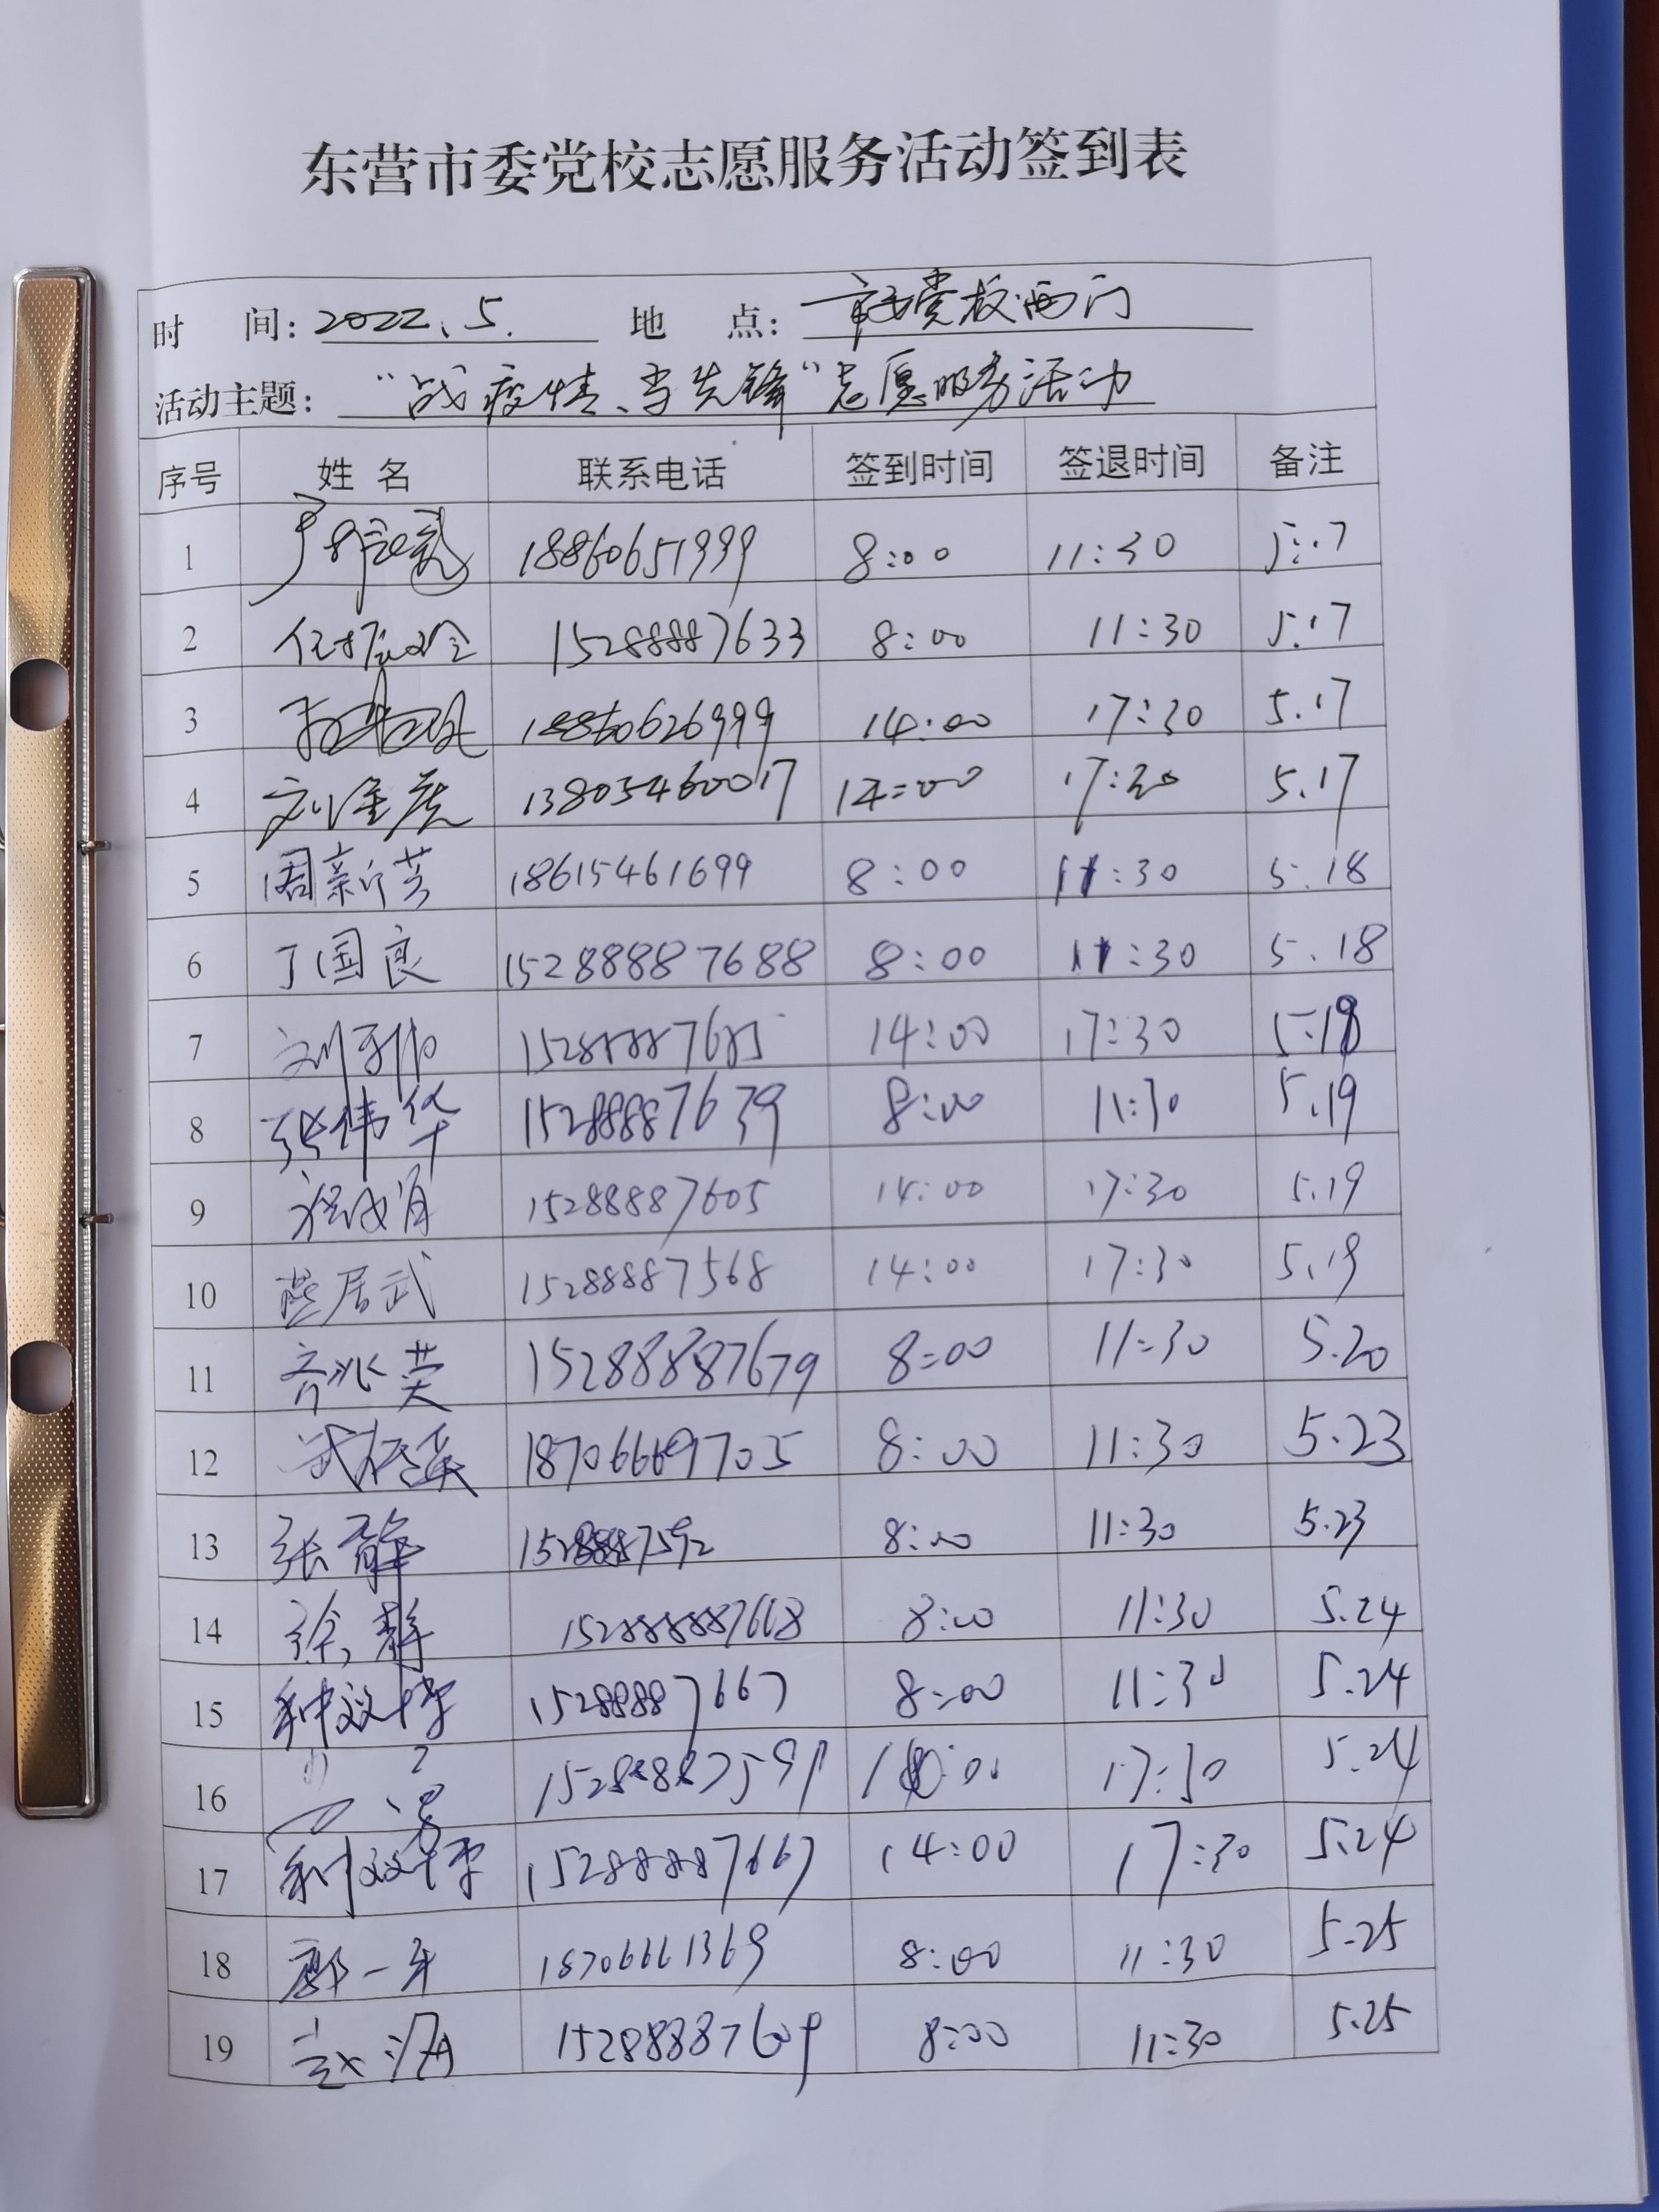 东营市委党校志愿服务活动签到表
时 间: 2022.5. 地 点: 市委党校西门
活动主题: “战疫情、当先锋”志愿服务活动
序号 姓名 联系电话 签到时间 签退时间 备注
1 18860651999 8:00 11:30 5.17
2 15288887633 8:00 11:30 5.17
3 18860626999 14:00 17:30 5.17
4 13805460017 14:00 17:30 5.17
5 周新芳 18615461699 8:00 11:30 5.18
6 丁国良 15288887688 8:00 11:30 5.18
7 14:00 17:30 5.18
8 张伟华 15288887639 8:00 11:30 5.19
9 15288887605 14:00 17:30 5.19
10 燕居武 15288887568 14:00 17:30 5.19
11 齐兆英 15288887679 8:00 11:30 5.20
12 18706669705 8:00 11:30 5.23
13 张静 8:00 11:30 5.23
14 徐静 8:00 11:30 5.24
15 15288887667 8:00 11:30 5.24
16 15288887591 17:30 5.24
17 15288887667 14:00 17:30 5.24
18 18706661369 8:00 11:30 5.25
19 15288887609 8:00 11:30 5.25